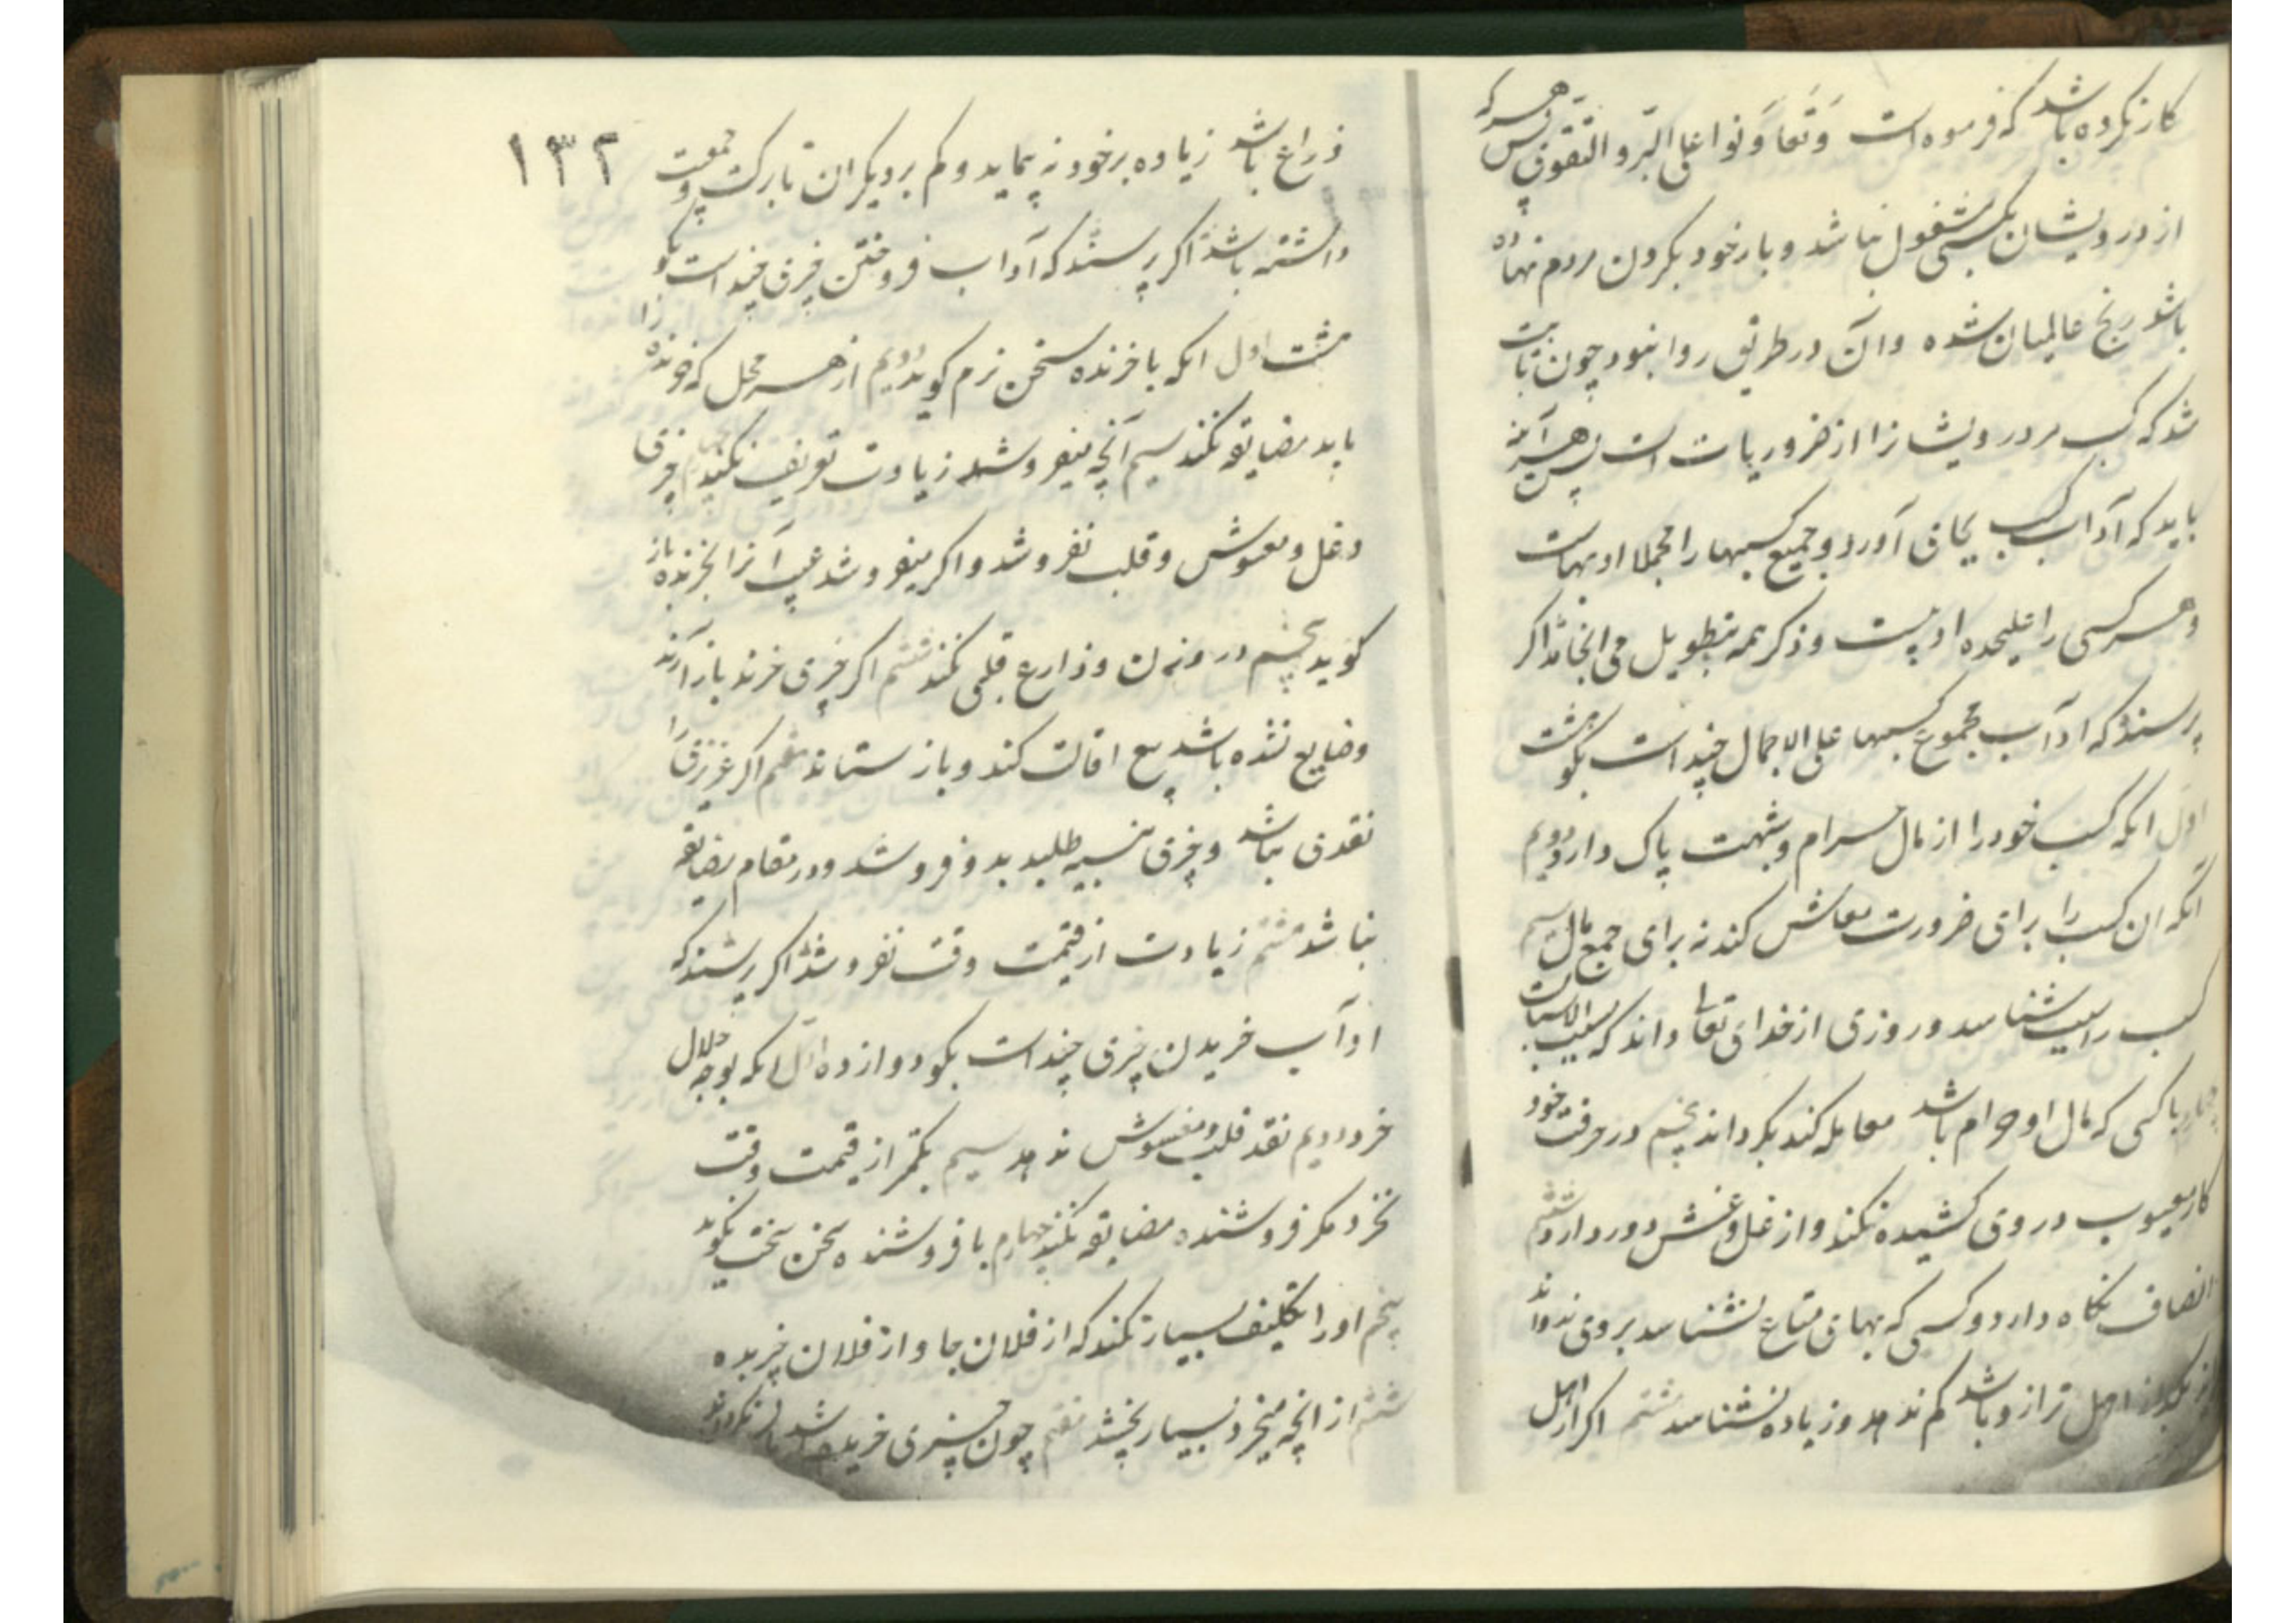 کار نکرده باشد که فرموده است وَتَعَاوَنوا علی البّر و التقوی پس هر که
از درویشان بکسبی مشغول نباشد و بار خود بکردن مردم نهاده
باشد و رنج عالمیان شده و آن در طریق روا نبود چون ثابت
شد که کسب مر درویشانرا از ضروریات است پس هر آینه
باید که آداب کسب بجای آورد و جمیع کسبها را مجملا ادبهاست
و هر کسبی را علیحده ادبیست و ذکر همه بتطویل می انجامد اکر
پرسند که اداب مجموع کسبها علی الاجمال چند است بکو هشت
اول انکه کسب خود را از مال حرام و شبهت پاک دارد دویم
آنکه ان کسب را برای ضرورت معاش کند نه برای جمع مال سیم
کسب را سبب شناسد و روزی از خدای تعالی داند که مسبب الاسباب
چهارم با کسی که مال او حرام باشد معامله کند پنجم در حرفت خود
کار معیوب در وی کشیده نکند و از غل و غش دور دارد ششم
انصاف نکاه دارد و کسی که بهای متاع نشناسد بر وی
اهل ترازو باشد کم ندهد و زیاده نشناسد هشتم اکر از اهل
۱۳۲
ذراع باشد زیاده بر خود نه پیماید و کم بر دیکران تا برکت و جمعیت
داشته باشد اکر پرسند که آداب فروختن چیزی چند است بکو
هشت اول انکه با خرنده سخن نرم کوید دویم از هر محل که خرنده را
باید مضایقه نکند سیم آنچه میفروشد زیادت تعریف نکند چهارم چیزی
دغل و مغشوش و قلب نفروشد و اکر میفروشد عیب آنرا بخرنده باز
کوید پنجم در وزن و ذارع قلبی نکند ششم اکر چیزی خرند باز آرند
و ضایع نشده باشد بیع اقالت کند و باز ستاند هفتم اکر عزیزی را
نقدی نباشد و چیزی بنسیه طلبد بدو فروشد و در مقام مضایقه
نباشد هشتم زیادت از قیمت وقت نفروشد اکر پرسند که
اداب خریدن چیزی چند است بکو دوازده اول انکه بوجه حلال
خرد دویم نقد قلب و مغشوش ندهد سیم بکمتر از قیمت وقت
نخرد مکر فروشنده مضایقه نکند چهارم با فروشنده سخن سخت نکوید
پنجم او را تکلیف بسیار نکند که از فلان جا و از فلان چیز بده
ششم از انچه میخرد بسیار بخشد هفتم چون چیزی خریده باشد باز نکرداند